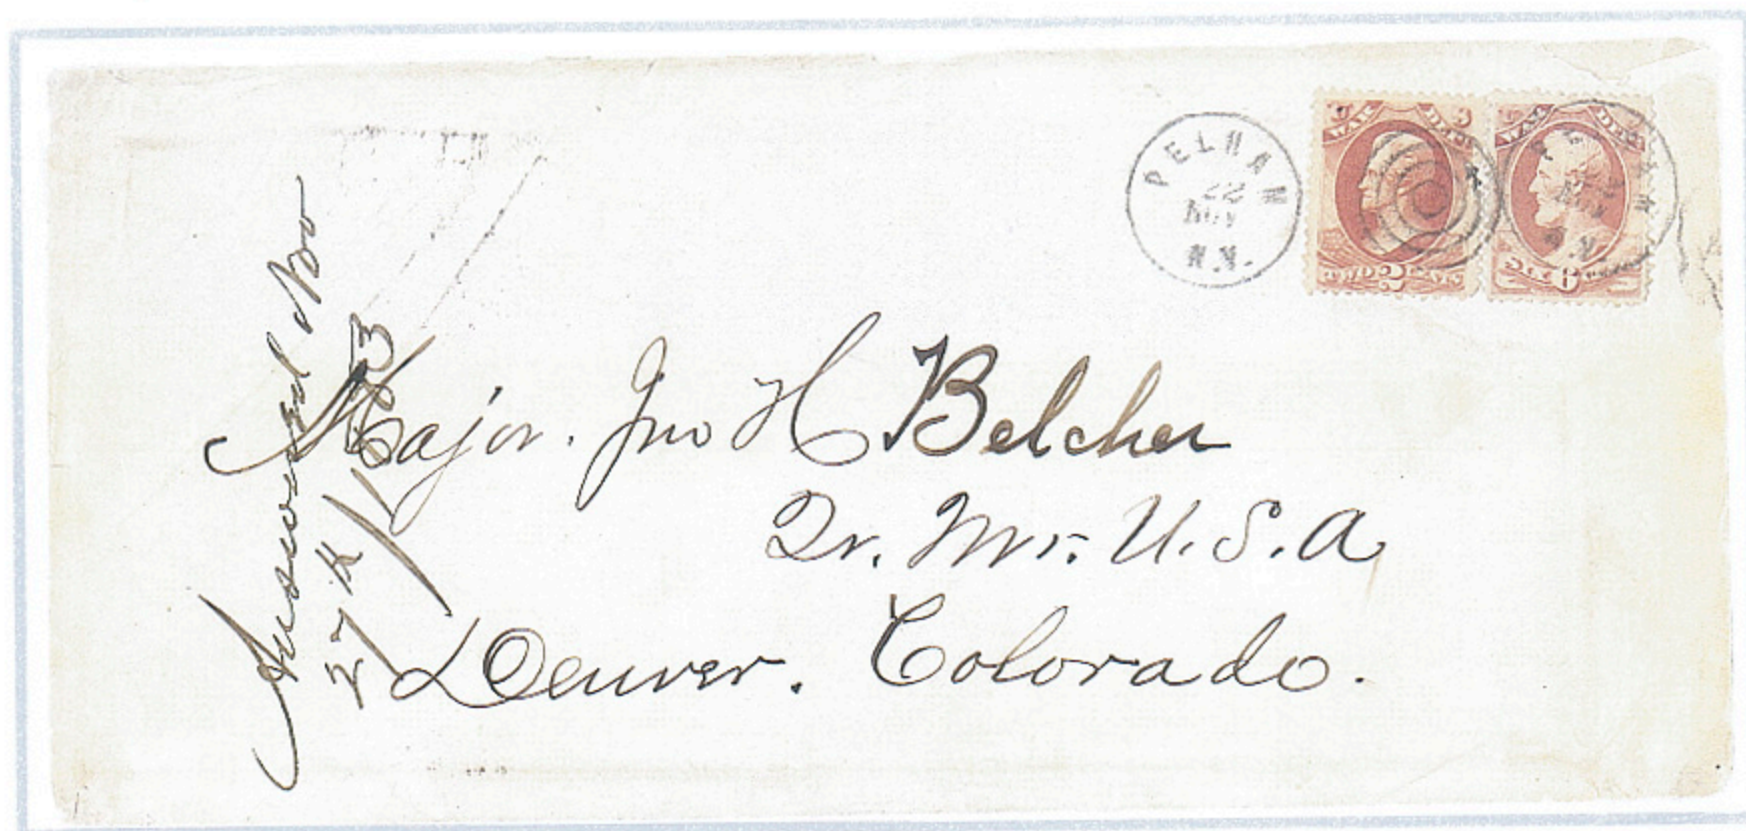 PELHAM
22
NOV
N.Y.
WAR DEPT.
TWO 2 CENTS
WAR DEPT.
SIX 6
Answered No
27/4/1883
Major. Jno H Belcher
Qr. Mr. U.S.A
Denver. Colorado.